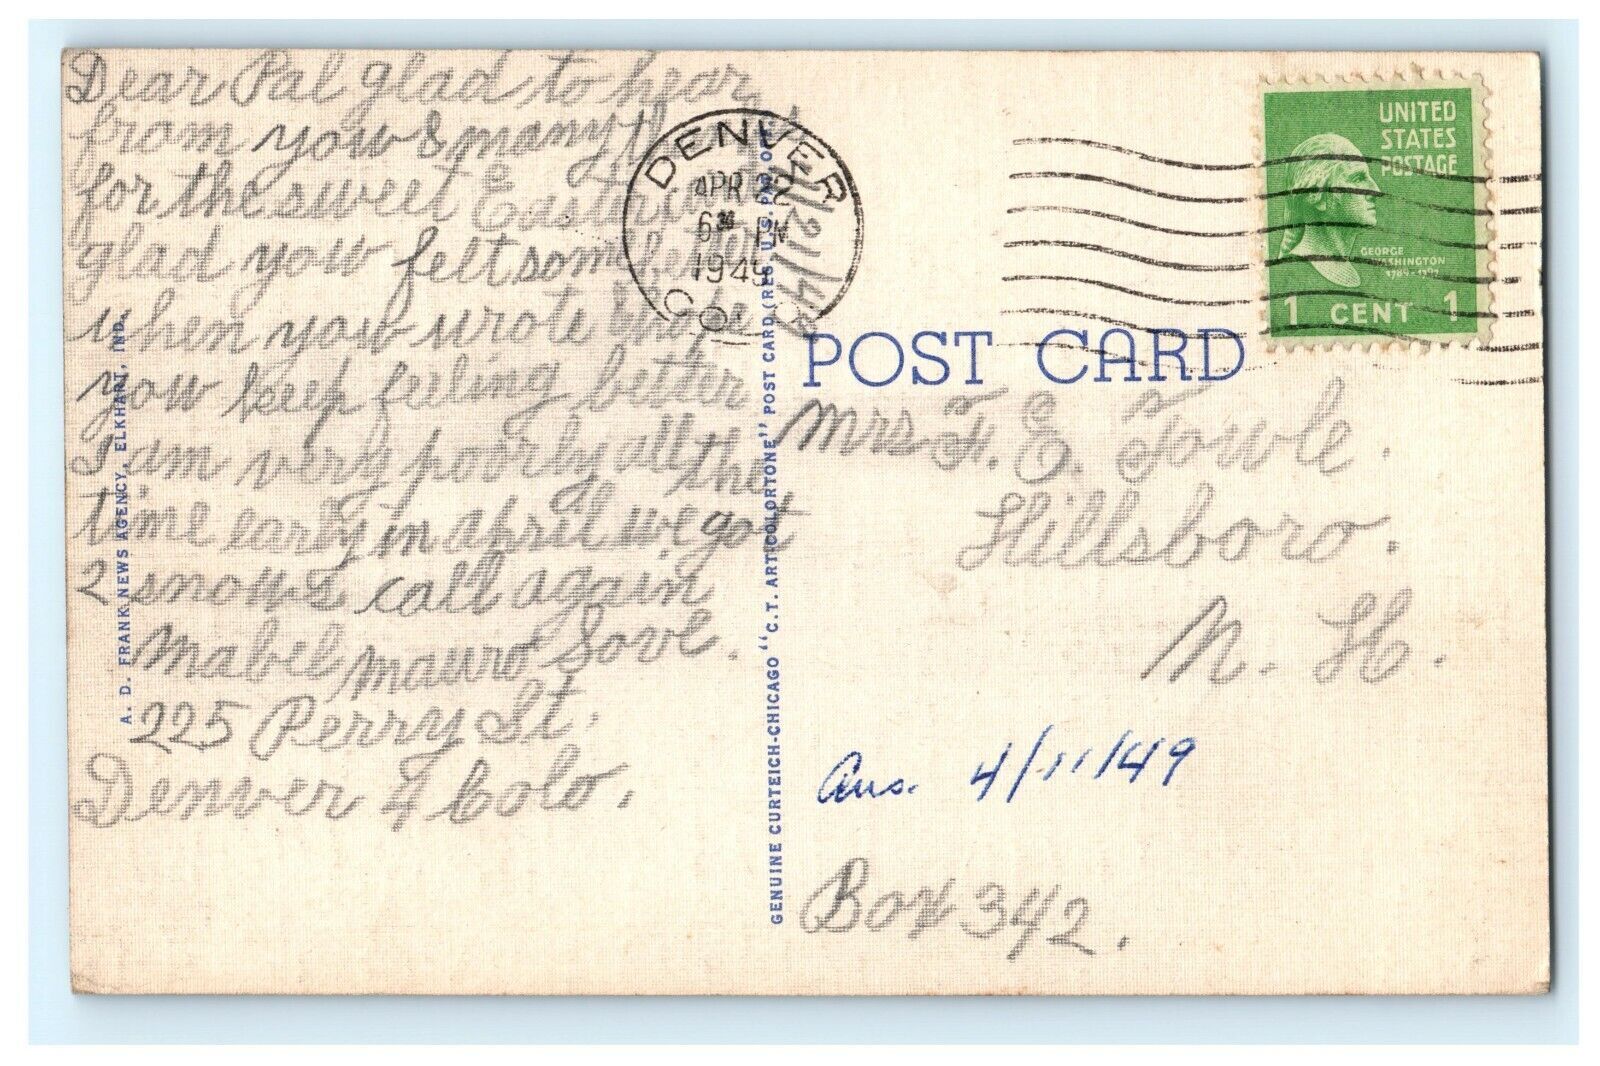 Dear Pal glad to hear
from you & many
for the sweet Easter
glad you felt some better
when you wrote & hope
you keep feeling better
I am very poorly all the
time early in april we got
2 snows call again
Mabel Mauro Love.
225 Perry St.
Denver 4 Colo.
A. D. FRANK NEWS AGENCY, ELKHART, IND.
DENVER
APR 22
6 PM
1949
COLO
4/21/49
GENUINE CURTEICH-CHICAGO "C.T. ART-COLORTONE" POST CARD (REG. U.S. PAT. OFF.)
UNITED
STATES
POSTAGE
GEORGE
WASHINGTON
1789-1797
1 CENT 1
POST CARD
Mrs F. E. Towle.
Hillsboro.
N. H.
Ans. 4/11/49
Box 342.